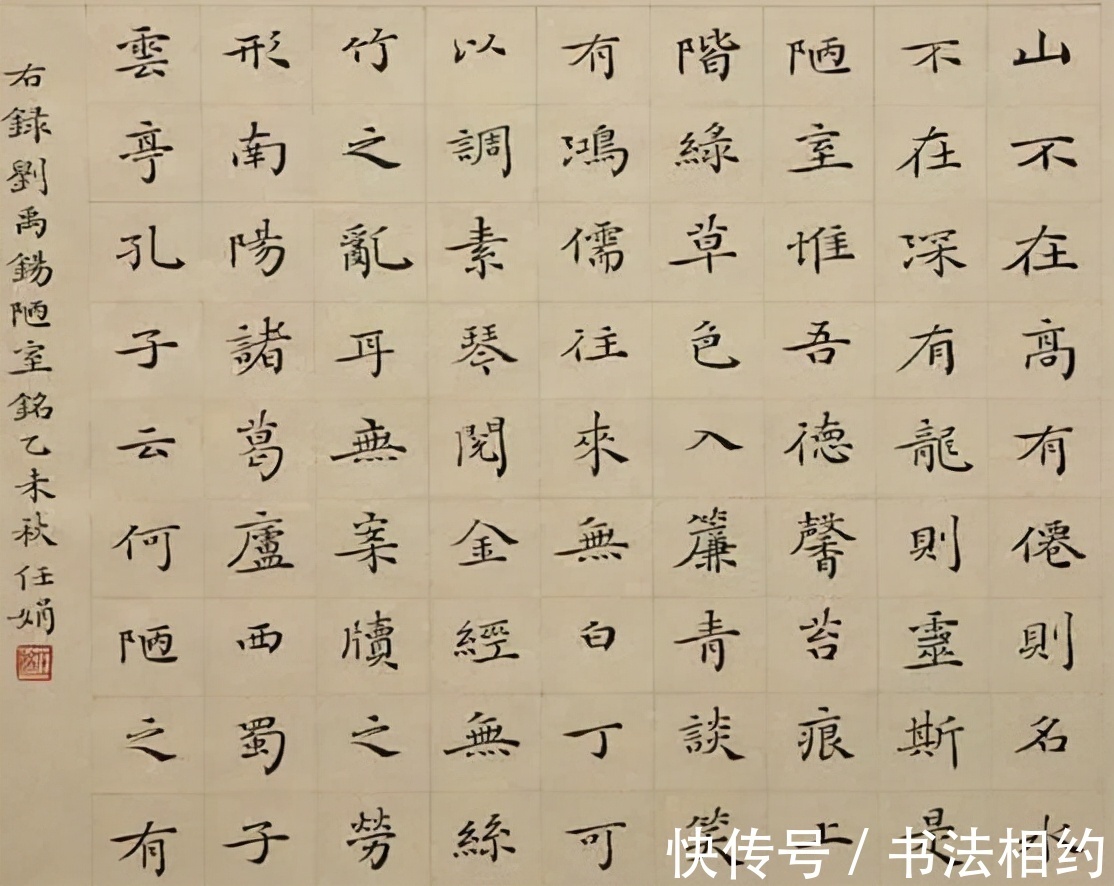 山不在高有僊則名水
不在深有龍則靈斯是
陋室惟吾德馨苔痕上
階綠草色入簾青談笑
有鴻儒往來無白丁可
以調素琴閱金經無絲
竹之亂耳無案牘之勞
形南陽諸葛廬西蜀子
雲亭孔子云何陋之有
右録劉禹錫陋室銘乙未秋任娟
快传号 / 书法相约